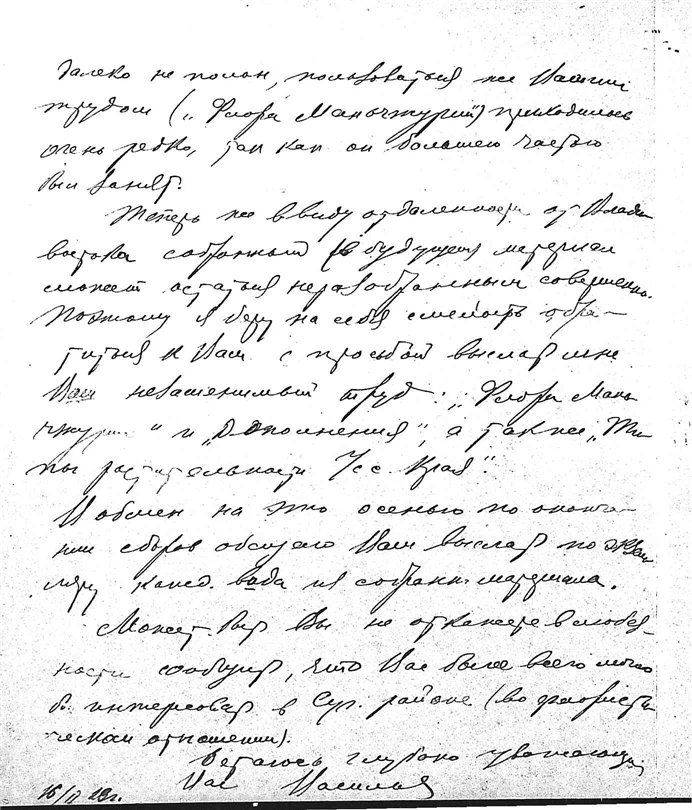 далеко не полон, пользоваться же Вашим
трудом („Флора Маньчжурии") приходилось
очень редко, так как он большею частью
был занят.
Теперь же ввиду отдаленности от Влади
востока собранный в будущем материал
может остаться неразобранным совершенно.
Поэтому я беру на себя смелость обра-
титься к Вам с просьбой выслать мне
Ваш незаменимый труд: „Флора Мань
чжурии" и „Дополнения", а также „Ти
пы растительности Усс. Края".
В обмен на это осенью по оконча-
нии сборов обещаю Вам выслать по экзем
пляру кажд. вида из собранн. материала.
Может быть Вы не откажете в любез-
ности сообщить, что Вас более всего могло
б. интересовать в Суч. районе (во флористи
ческом отношении).
Остаюсь глубоко уважающий
Вас
16/II 29г.